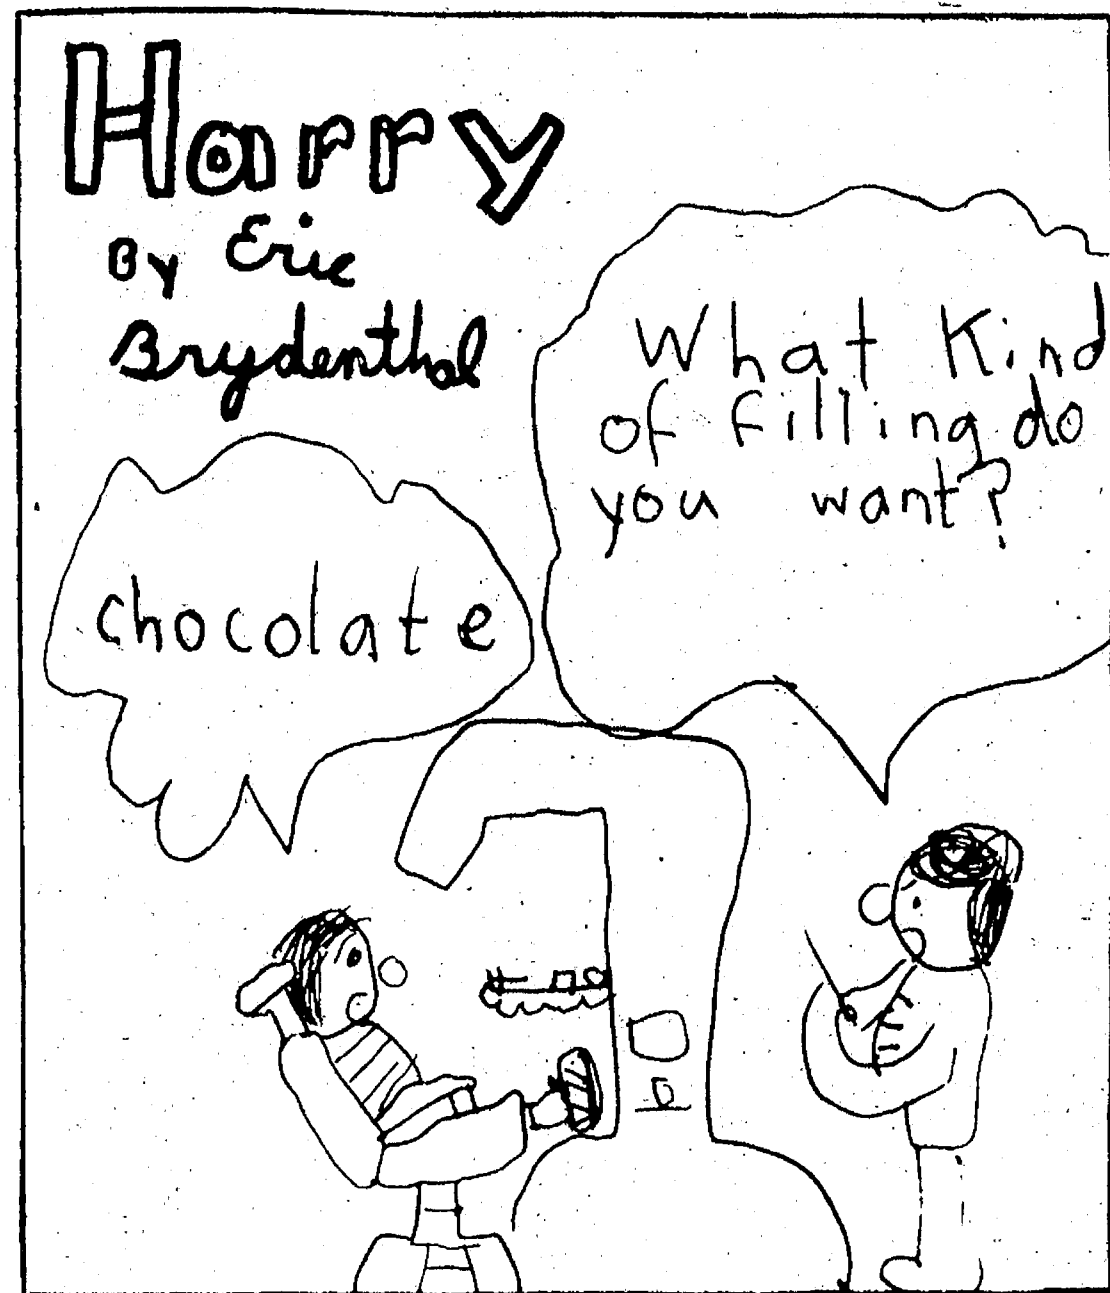 Harry
By Eric
Brydenthal
What Kind
of filling do
you want?
chocolate